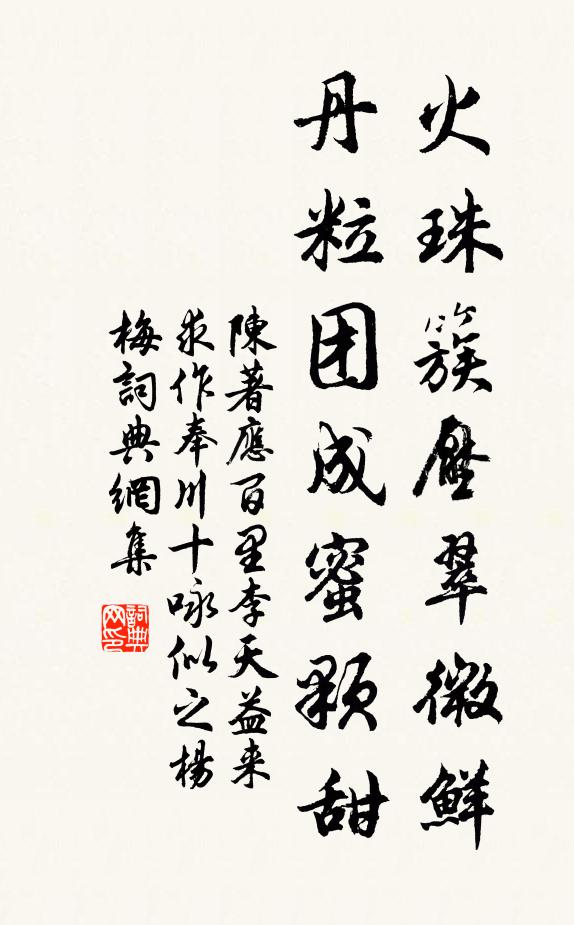 火珠簇壓翠微鮮
丹粒团成蜜顆甜
陳著應百里李天益来
求作奉川十咏似之楊
梅詞典網集
詞典网印